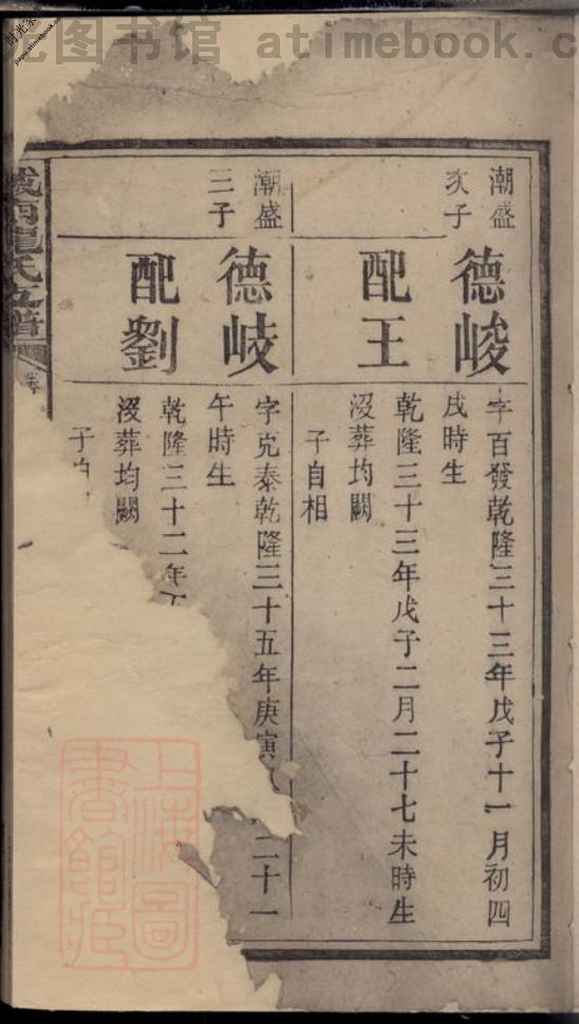 光图书馆 atimebook.c
潮盛
次子
德峻
字百發乾隆三十三年戊子十一月初四
戌時生
配王
乾隆三十三年戊子二月二十七未時生
沒葬均闕
子自相
潮盛
三子
德岐
字克泰乾隆三十五年庚寅
二十一
午時生
配劉
乾隆三十二年
沒葬均闕
子
氏支譜
上海圖書館